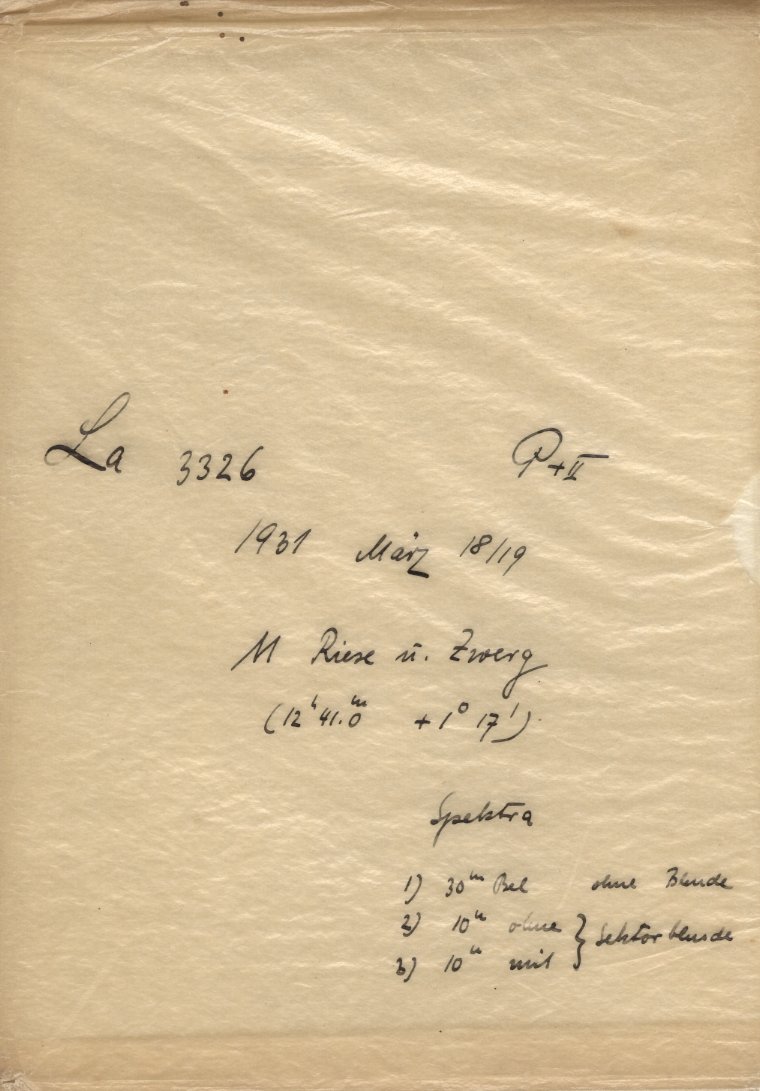 La 3326 P+II
1931 März 18/19
M Riese u. Zwerg
(12ʰ41.0ᵐ +1° 17')
Spektra
1) 30ᵐ Bel ohne Blende
2) 10ᵐ ohne } Sektorblende
3) 10ᵐ mit